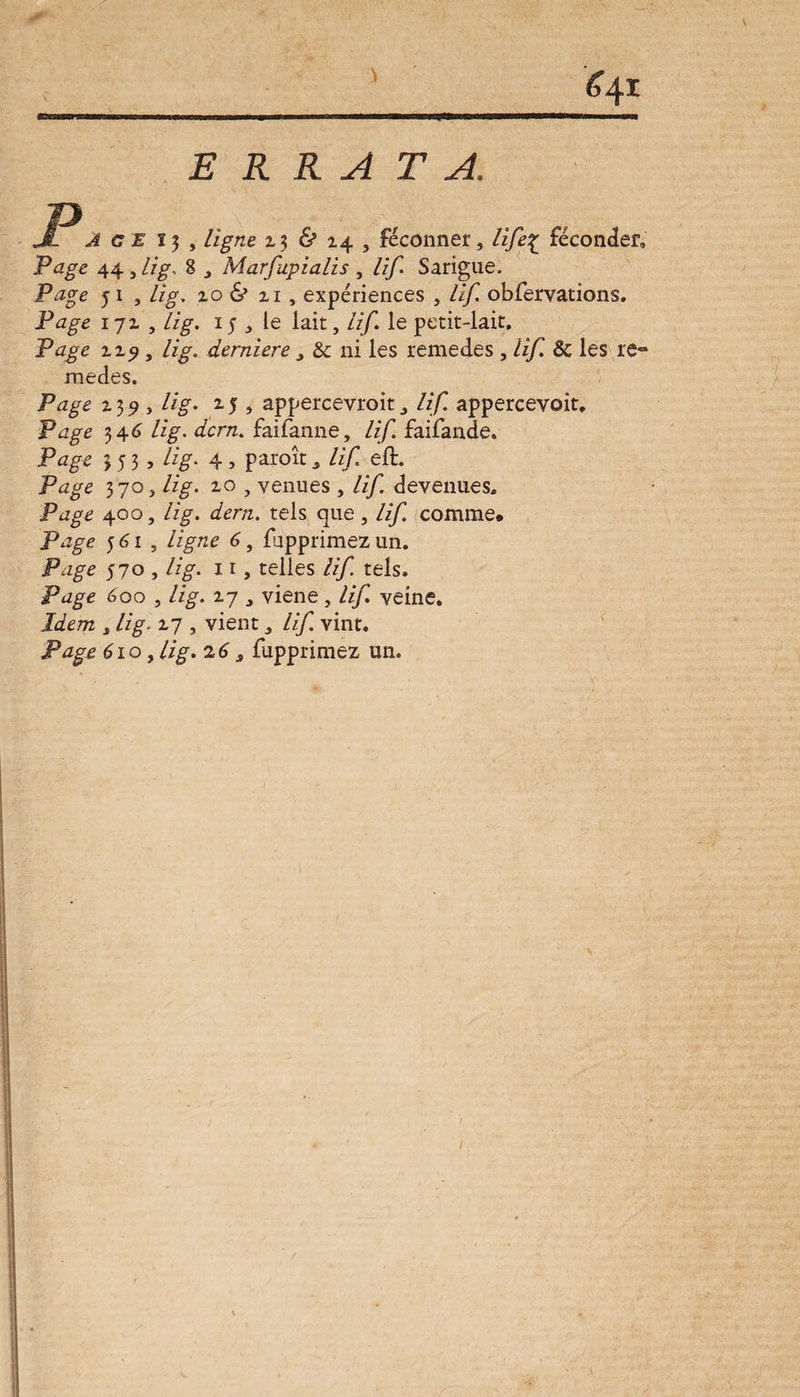 641
ERRATA.
PAGE 13, ligne 23 & 24, féconner, liſez féconder.
Page 44, lig. 8, Marſupialis, liſ. Sarigue.
Page 51, lig. 20 & 21, expériences, liſ. obſervations.
Page 172, lig. 15, le lait, liſ. le petit-lait.
Page 229, lig. derniere, & ni les remedes, liſ. & les re-
medes.
Page 239, lig. 25, appercevroit, liſ. appercevoit.
Page 346 lig. dern. faiſanne, liſ. faiſande.
Page 353, lig. 4, paroît, liſ. eſt.
Page 370, lig. 20, venues, liſ. devenues.
Page 400, lig. dern. tels que, liſ. comme.
Page 561, ligne 6, ſupprimez un.
Page 570, lig. 11, telles liſ. tels.
Page 600, lig. 27, viene, liſ. veine.
Idem, lig. 27, vient, liſ. vint.
Page 610, lig. 26, ſupprimez un.